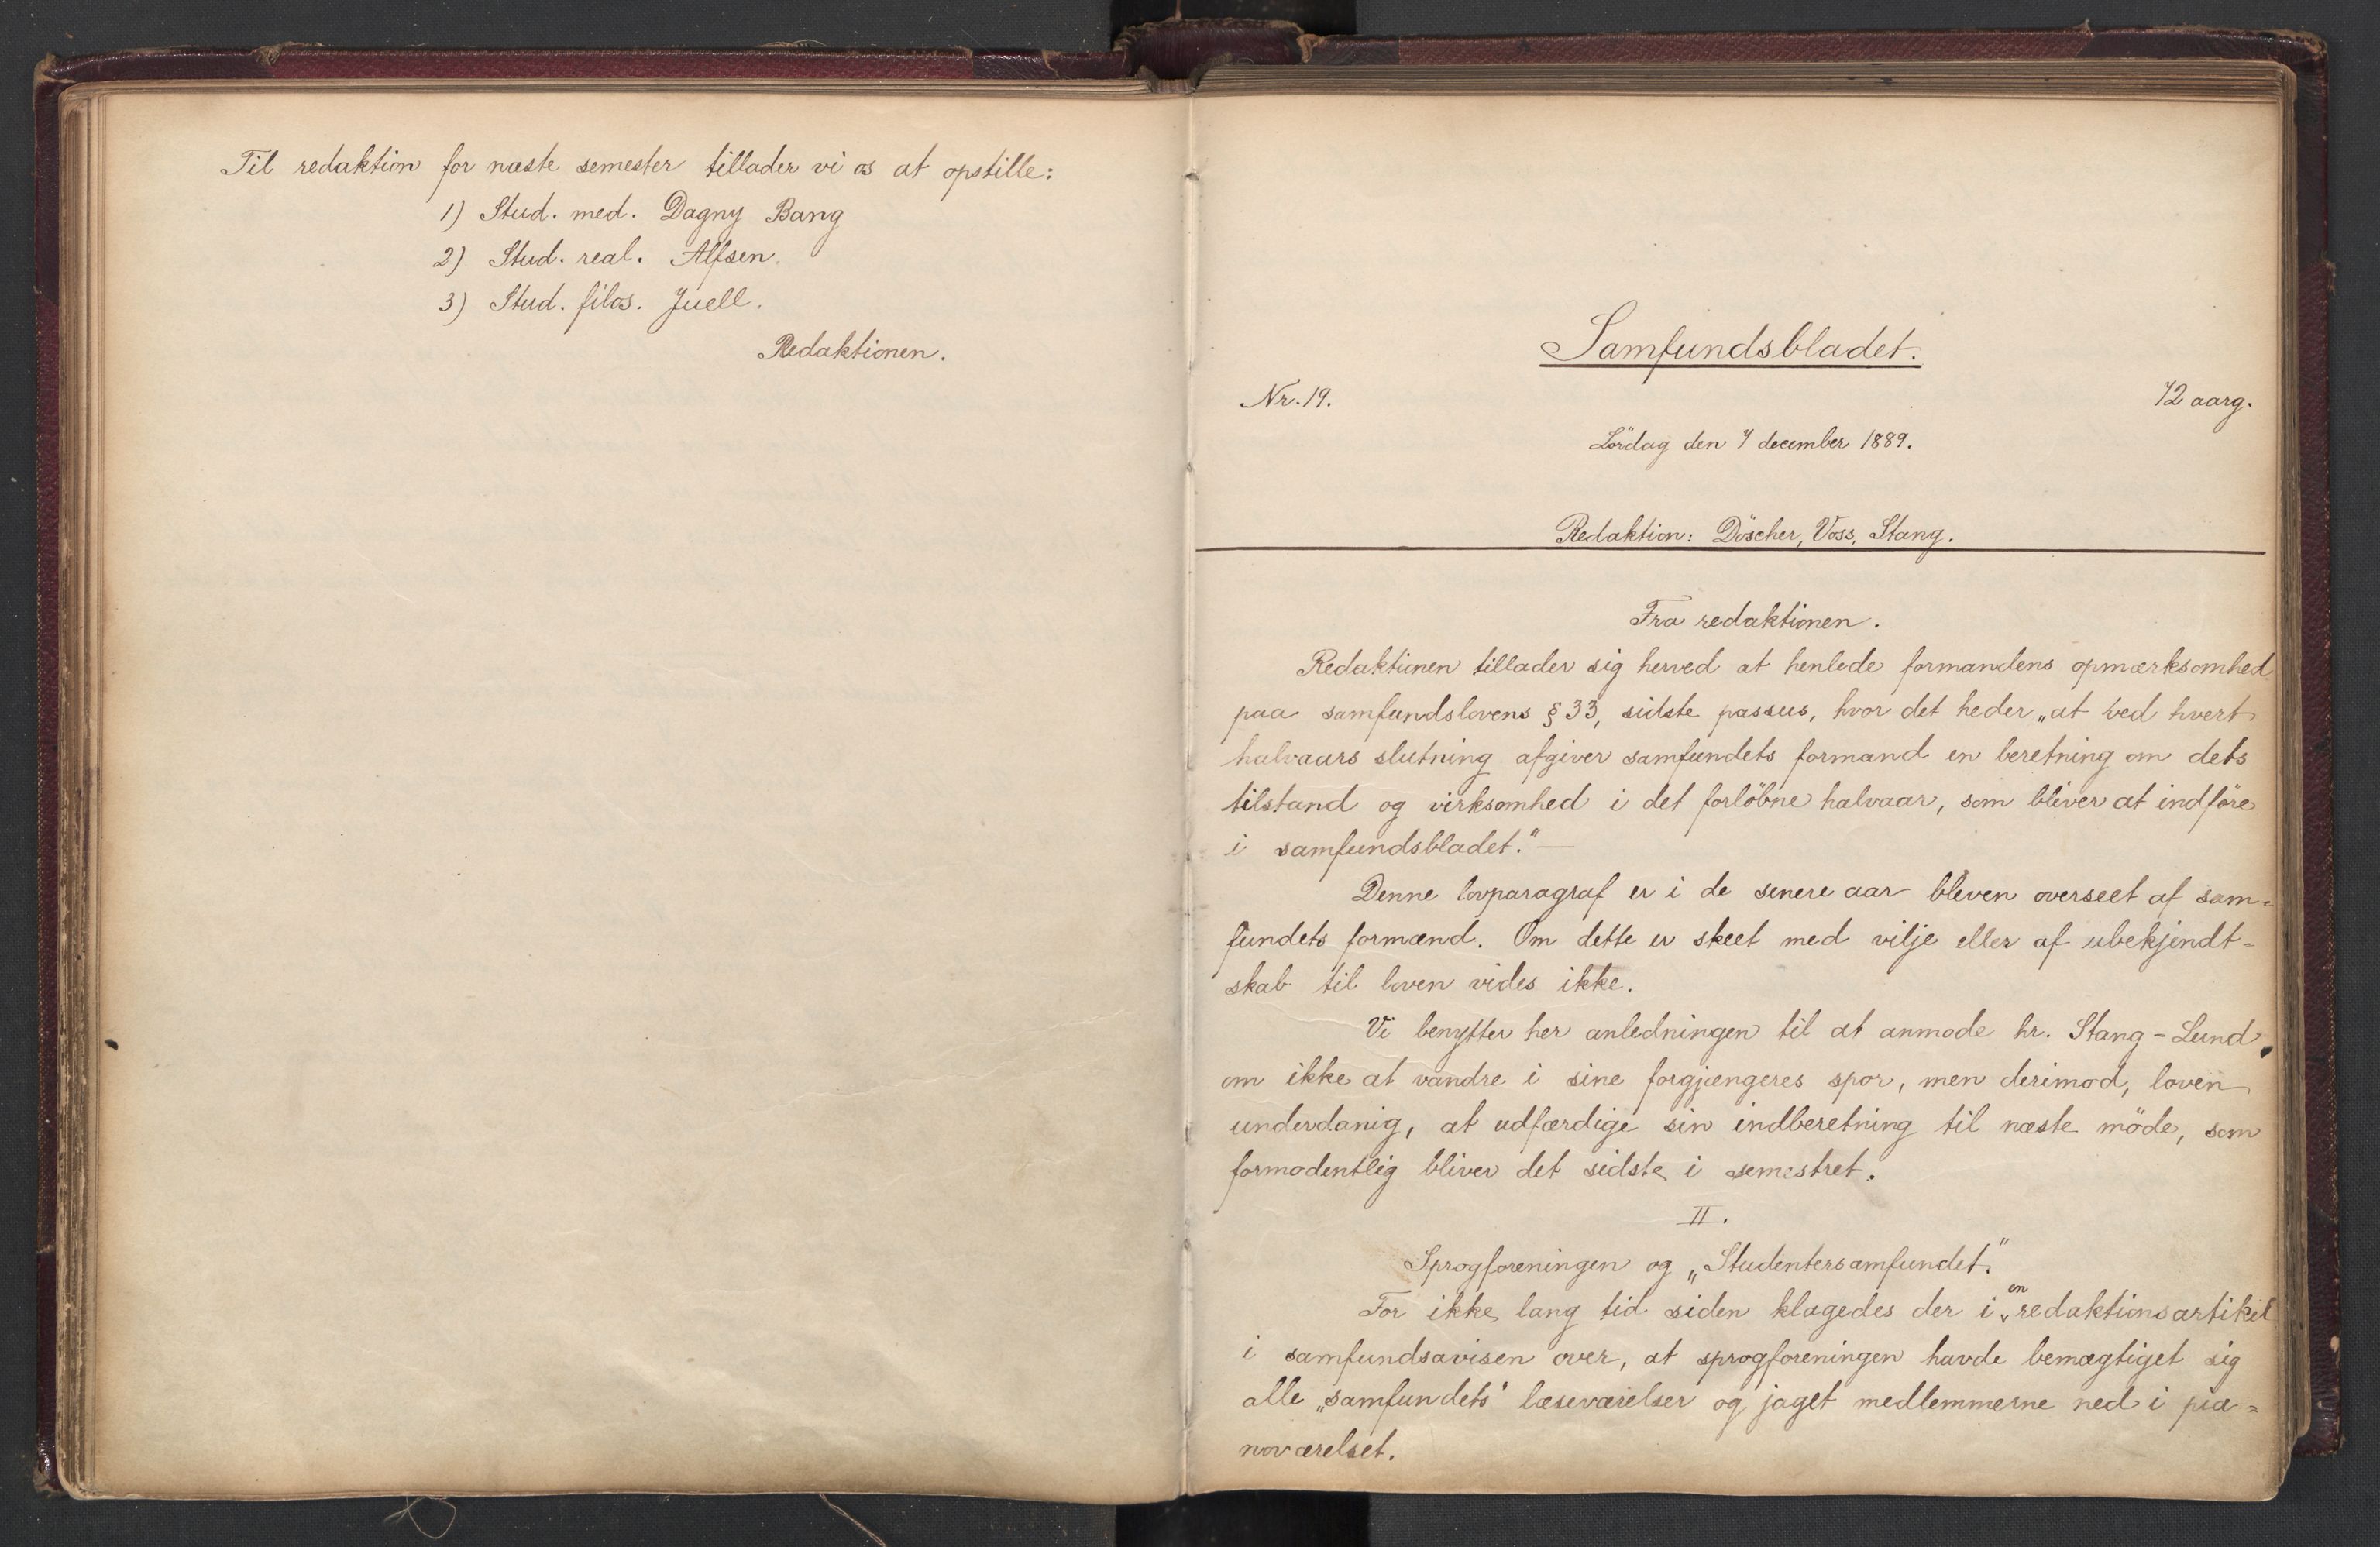 Til redaktion for næste semester tillader vi os at opstille:
1) Stud. med. Dagny Bang
2) Stud. real. Alfsen.
3) Stud. filos. Juell.
Redaktionen.
Samfundsbladet.
Nr. 19.
72 aarg.
Lördag den 7 december 1889.
Redaktion: Döscher, Voss, Stang.
Fra redaktionen.
Redaktionen tillader sig herved at henlede formandens opmærksomhed
paa samfundslovens § 33, sidste passus, hvor det heder „at ved hvert
halvaars slutning afgiver samfundets formand en beretning om dets
tilstand og virksomhed i det forløbne halvaar, som bliver at indføre
i samfundsbladet.“ —
Denne lovparagraf er i de senere aar bleven overseet af sam=
fundets formænd. Om dette er skeet med vilje eller af ubekjendt=
skab til loven vides ikke.
Vi benytter her anledningen til at anmode hr. Stang-Lund
om ikke at vandre i sine forgjængeres spor, men derimod, loven
underdanig, at udfærdige sin indberetning til næste möde, som
formodentlig bliver det sidste i semestret.
II.
Sprogforeningen og „Studentersamfundet.“
For ikke lang tid siden klagedes der i en redaktionsartikel
i samfundsavisen over, at sprogforeningen havde bemægtiget sig
alle „samfundets“ læseværelser og jaget medlemmerne ned i pia=
noværelset.